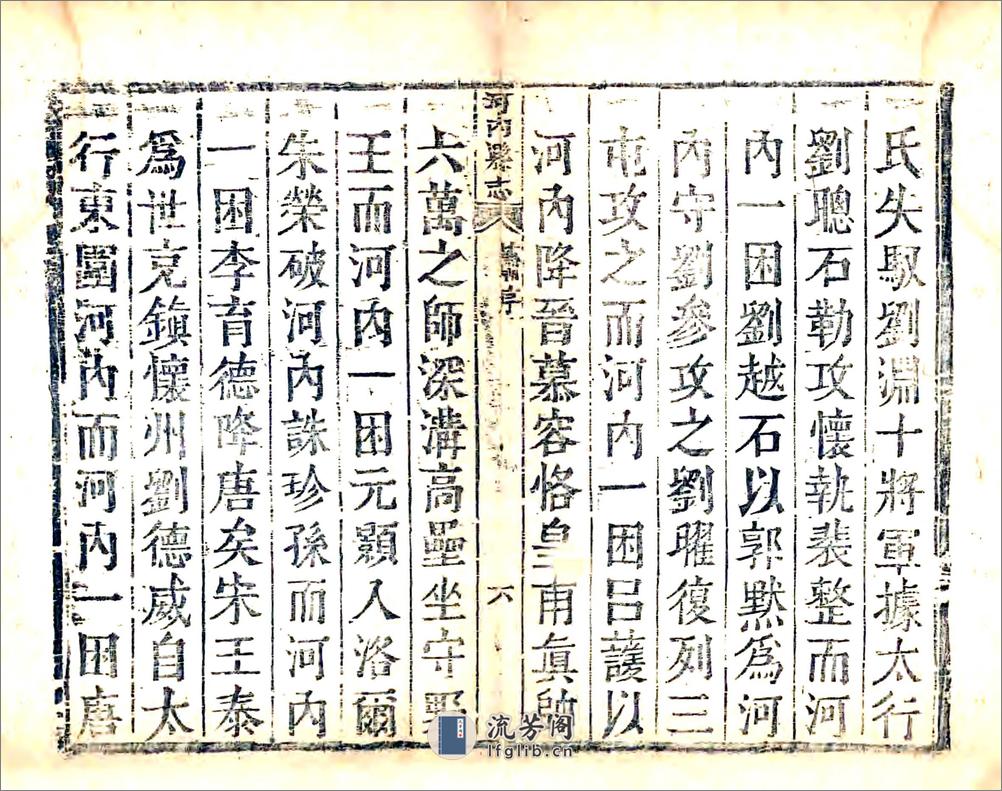 氏失馭劉淵十將軍據太行
劉聰石勒攻懷執裴整而河
內一困劉越石以郭默爲河
內守劉參攻之劉曜復列三
屯攻之而河內一困呂護以
河內降晉慕容恪皇甫眞帥
河內縣志
舊序
六
六萬之師深溝高壘坐守野
王而河內一困元顥入洛爾
朱榮破河內誅珍孫而河內
一困李育德降唐矣宋王泰
爲世克鎭懷州劉德威自太
行東圍河內而河內一困唐
流芳阁
lfglib.cn